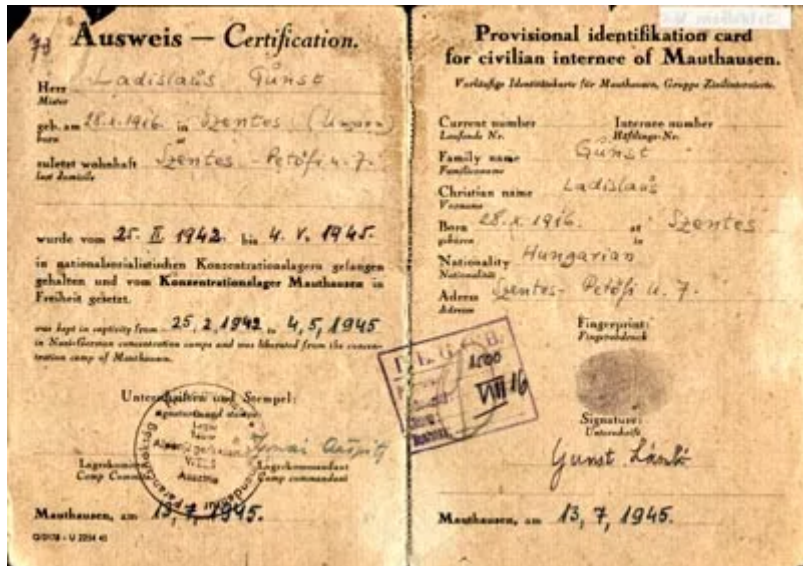 Ausweis — Certification.
Herr Ladislaus Günst
Mister
geb. am 28.X.1916. in Szentes (Ungarn)
born at
zuletzt wohnhaft Szentes - Petőfi u. 7.
last domicile
wurde vom 25. II. 1942. bis 4. V. 1945.
in nationalsozialistischen Konzentrationslagern gefangen
gehalten und vom Konzentrationslager Mauthausen in
Freiheit gesetzt.
was kept in captivity from 25,2,1942 to 4,5,1945
in Nazi-German concentration camps and was liberated from the concen-
tration camp of Mauthausen.
Unterschriften und Stempel:
Signature and stamps
WELS
Austria
Lagerkommandant
Camp commandant
Mauthausen, am 13,7,1945.
Provisional identifikation card
for civilian internee of Mauthausen.
Vorläufige Identitätskarte für Mauthausen, Gruppe Zivilinternierte.
Current number Internee number
Laufende Nr. Häftlings-Nr.
Family name Günst
Familienname
Christian name Ladislaus
Vorname
Born 28.X.1916. at Szentes
geboren in
Nationality Hungarian
Nationalität
Adress Szentes- Petőfi u. 7.
Adresse
Fingerprint:
Fingerabdruck
1500
VIII 16
Signature:
Unterschrift
Gunst László
Mauthausen, am 13,7,1945.